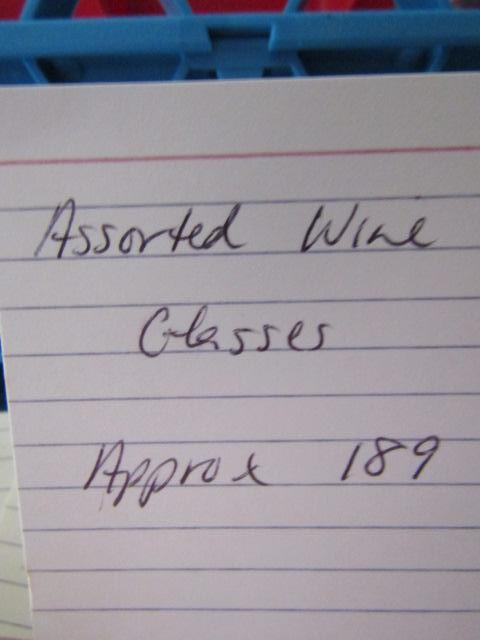 Assorted Wine
Glasses
Approx 189